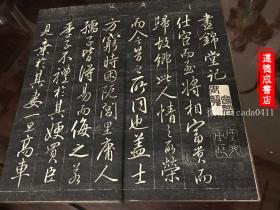 晝錦堂記
仕宦而至將相富貴而
歸故鄉此人情之所榮
而今昔之所同也蓋士
方窮時困阨閭里庸人
孺子皆得易而侮之若
季子不禮於其嫂買臣
見棄於其妻一旦高車